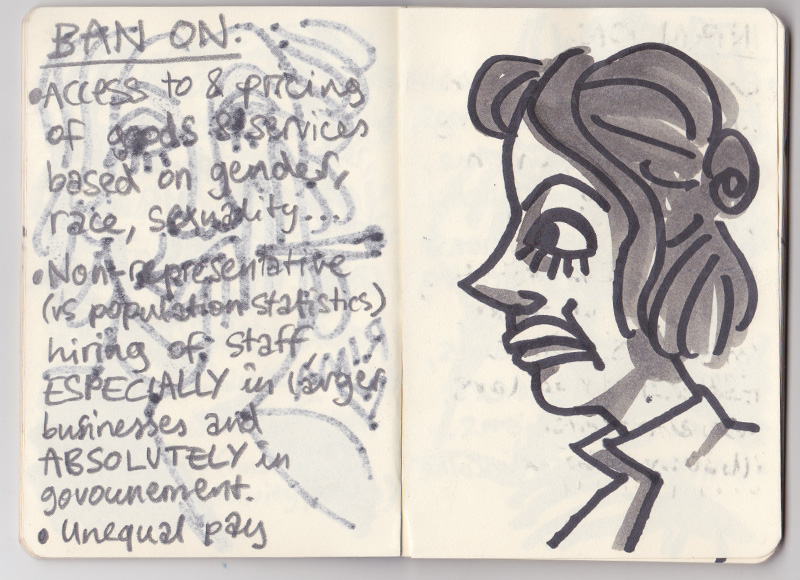 BAN ON:
• Access to & pricing
of goods & services
based on gender,
race, sexuality...
• Non-representative
(vs population statistics)
hiring of staff,
ESPECIALLY in larger
businesses and
ABSOLUTELY in
govounement.
• Unequal pay